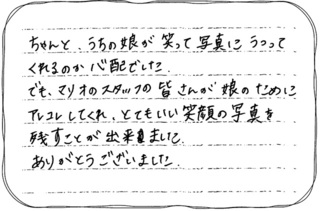 ちゃんと、うちの娘が笑って写真にうつって
くれるのか心配でした。
でも、マリオのスタッフの皆さんが娘のために
アレコレしてくれ、とてもいい笑顔の写真を
残すことが出来ました。
ありがとうございました。